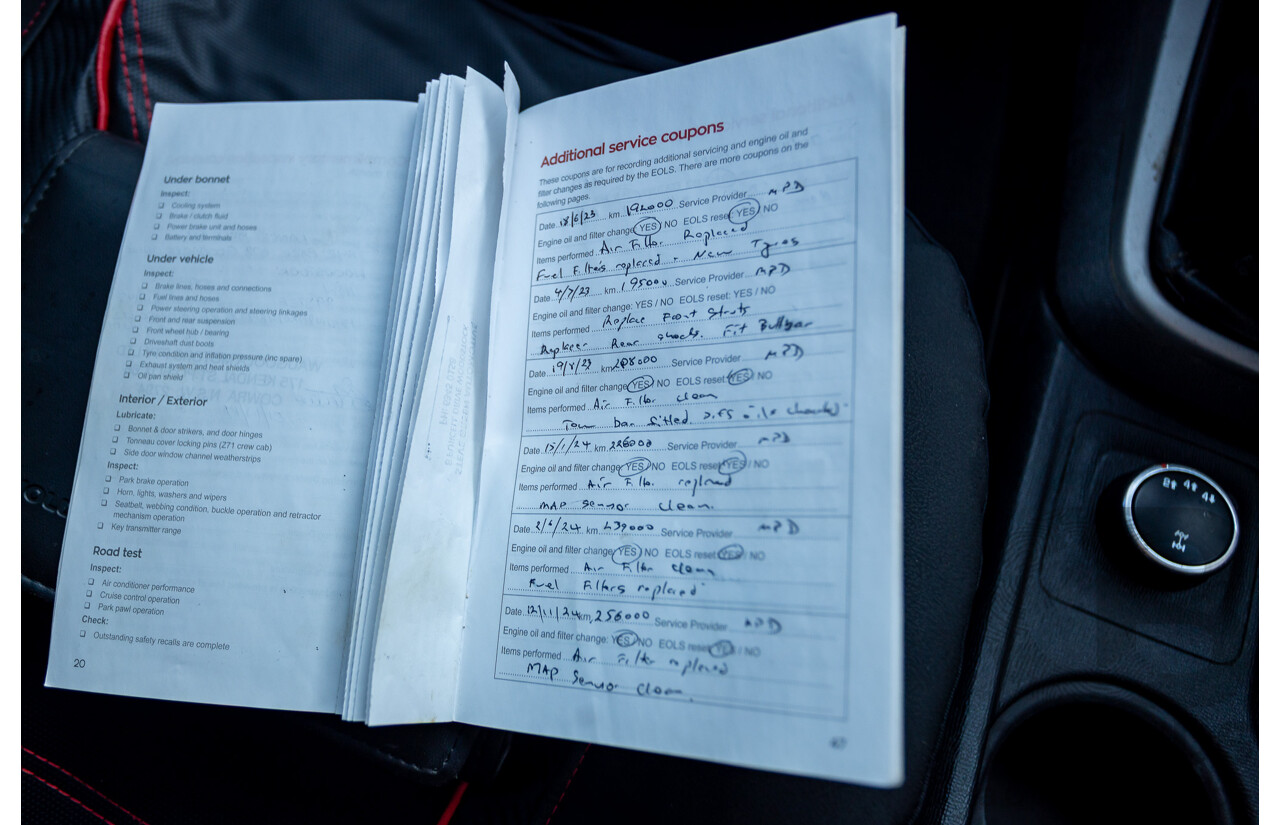 Under bonnet
Inspect:
❑ Cooling system
❑ Brake / clutch fluid
❑ Power brake unit and hoses
❑ Battery and terminals
Under vehicle
Inspect:
❑ Brake lines, hoses and connections
❑ Fuel lines and hoses
❑ Power steering operation and steering linkages
❑ Front and rear suspension
❑ Front wheel hub / bearing
❑ Driveshaft dust boots
❑ Tyre condition and inflation pressure (inc spare)
❑ Exhaust system and heat shields
❑ Oil pan shield
Interior / Exterior
Lubricate:
❑ Bonnet & door strikers, and door hinges
❑ Tonneau cover locking pins (Z71 crew cab)
❑ Side door window channel weatherstrips
Inspect:
❑ Park brake operation
❑ Horn, lights, washers and wipers
❑ Seatbelt, webbing condition, buckle operation and retractor
mechanism operation
❑ Key transmitter range
Road test
Inspect:
❑ Air conditioner performance
❑ Cruise control operation
❑ Park pawl operation
Check:
❑ Outstanding safety recalls are complete
20
Additional service coupons
These coupons are for recording additional servicing and engine oil and
filter changes as required by the EOLS. There are more coupons on the
following pages.
Date 18/6/23 km 192000 Service Provider MPD
Engine oil and filter change YES NO EOLS reset YES / NO
Items performed Air Filter Replaced
Fuel Filters replaced - New Tyres
Date 4/7/23 km 195000 Service Provider MPD
Engine oil and filter change: YES / NO EOLS reset: YES / NO
Items performed Replace Front Struts
Replace Rear shocks. Fit Bullbar
Date 19/8/23 km 208000 Service Provider MPD
Engine oil and filter change YES NO EOLS reset YES / NO
Items performed Air Filter clean
Tow bar fitted checked
Date 15/1/24 km 226000 Service Provider MPD
Engine oil and filter change YES NO EOLS reset YES / NO
Items performed Air Filter replaced
MAP Sensor clean.
Date 2/6/24 km 239000 Service Provider MPD
Engine oil and filter change YES NO EOLS reset YES NO
Items performed Air Filter clean
Fuel Filters replaced
Date 12/11/24 km 256000 Service Provider MPD
Engine oil and filter change: YES NO EOLS reset YES / NO
Items performed Air Filter replaced
MAP Sensor clean.
47